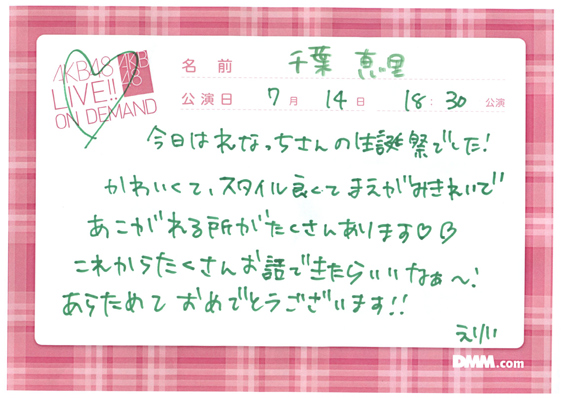 AKB48
LIVE!!
ON DEMAND
AKB
48
名前 千葉 恵里
公演日 7月 14日 18:30 公演
今日はれなっちさんの生誕祭でした!
かわいくて、スタイル良くてまえがみきれいで
あこがれる所がたくさんあります♡♡
これからたくさんお話できたらいいなぁ〜!
あらためて おめでとうございます!!
えりい
DMM.com